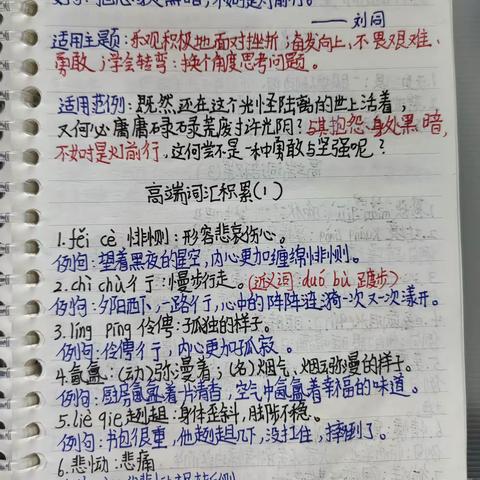 ——刘同
适用主题:乐观积极地面对挫折;奋发向上,不畏艰难、
勇敢;学会转弯:换个角度思考问题。
适用范例:既然还在这个光怪陆离的世上活着,
又何必庸庸碌碌荒废了许光阴?与其抱怨身处黑暗,
不如提灯前行,这何尝不是一种勇敢与坚强呢?
高端词汇积累(1)
1.fěi cè 悱恻:形容悲哀伤心。
例句:望着黑夜的星空,内心更加缠绵悱恻。
2.chì chù彳亍:慢步行走。(近义词 duó bù 踱步)
例句:夕阳西下,一路彳亍,心中的阵阵涟漪一次又一次漾开。
3.líng pīng 伶俜:孤独的样子。
例句:伶俜彳亍,内心更加孤寂。
4.氤氲:(动)弥漫着;(名)烟气、烟云弥漫的样子。
例句:厨房氤氲着一片清香,空气中氤氲着幸福的味道。
5.liè qie趔趄:身体歪斜,脚步不稳。
例句:书包很重,他趔趄几下,没扛住,摔倒了。
6.悲恸:悲痛